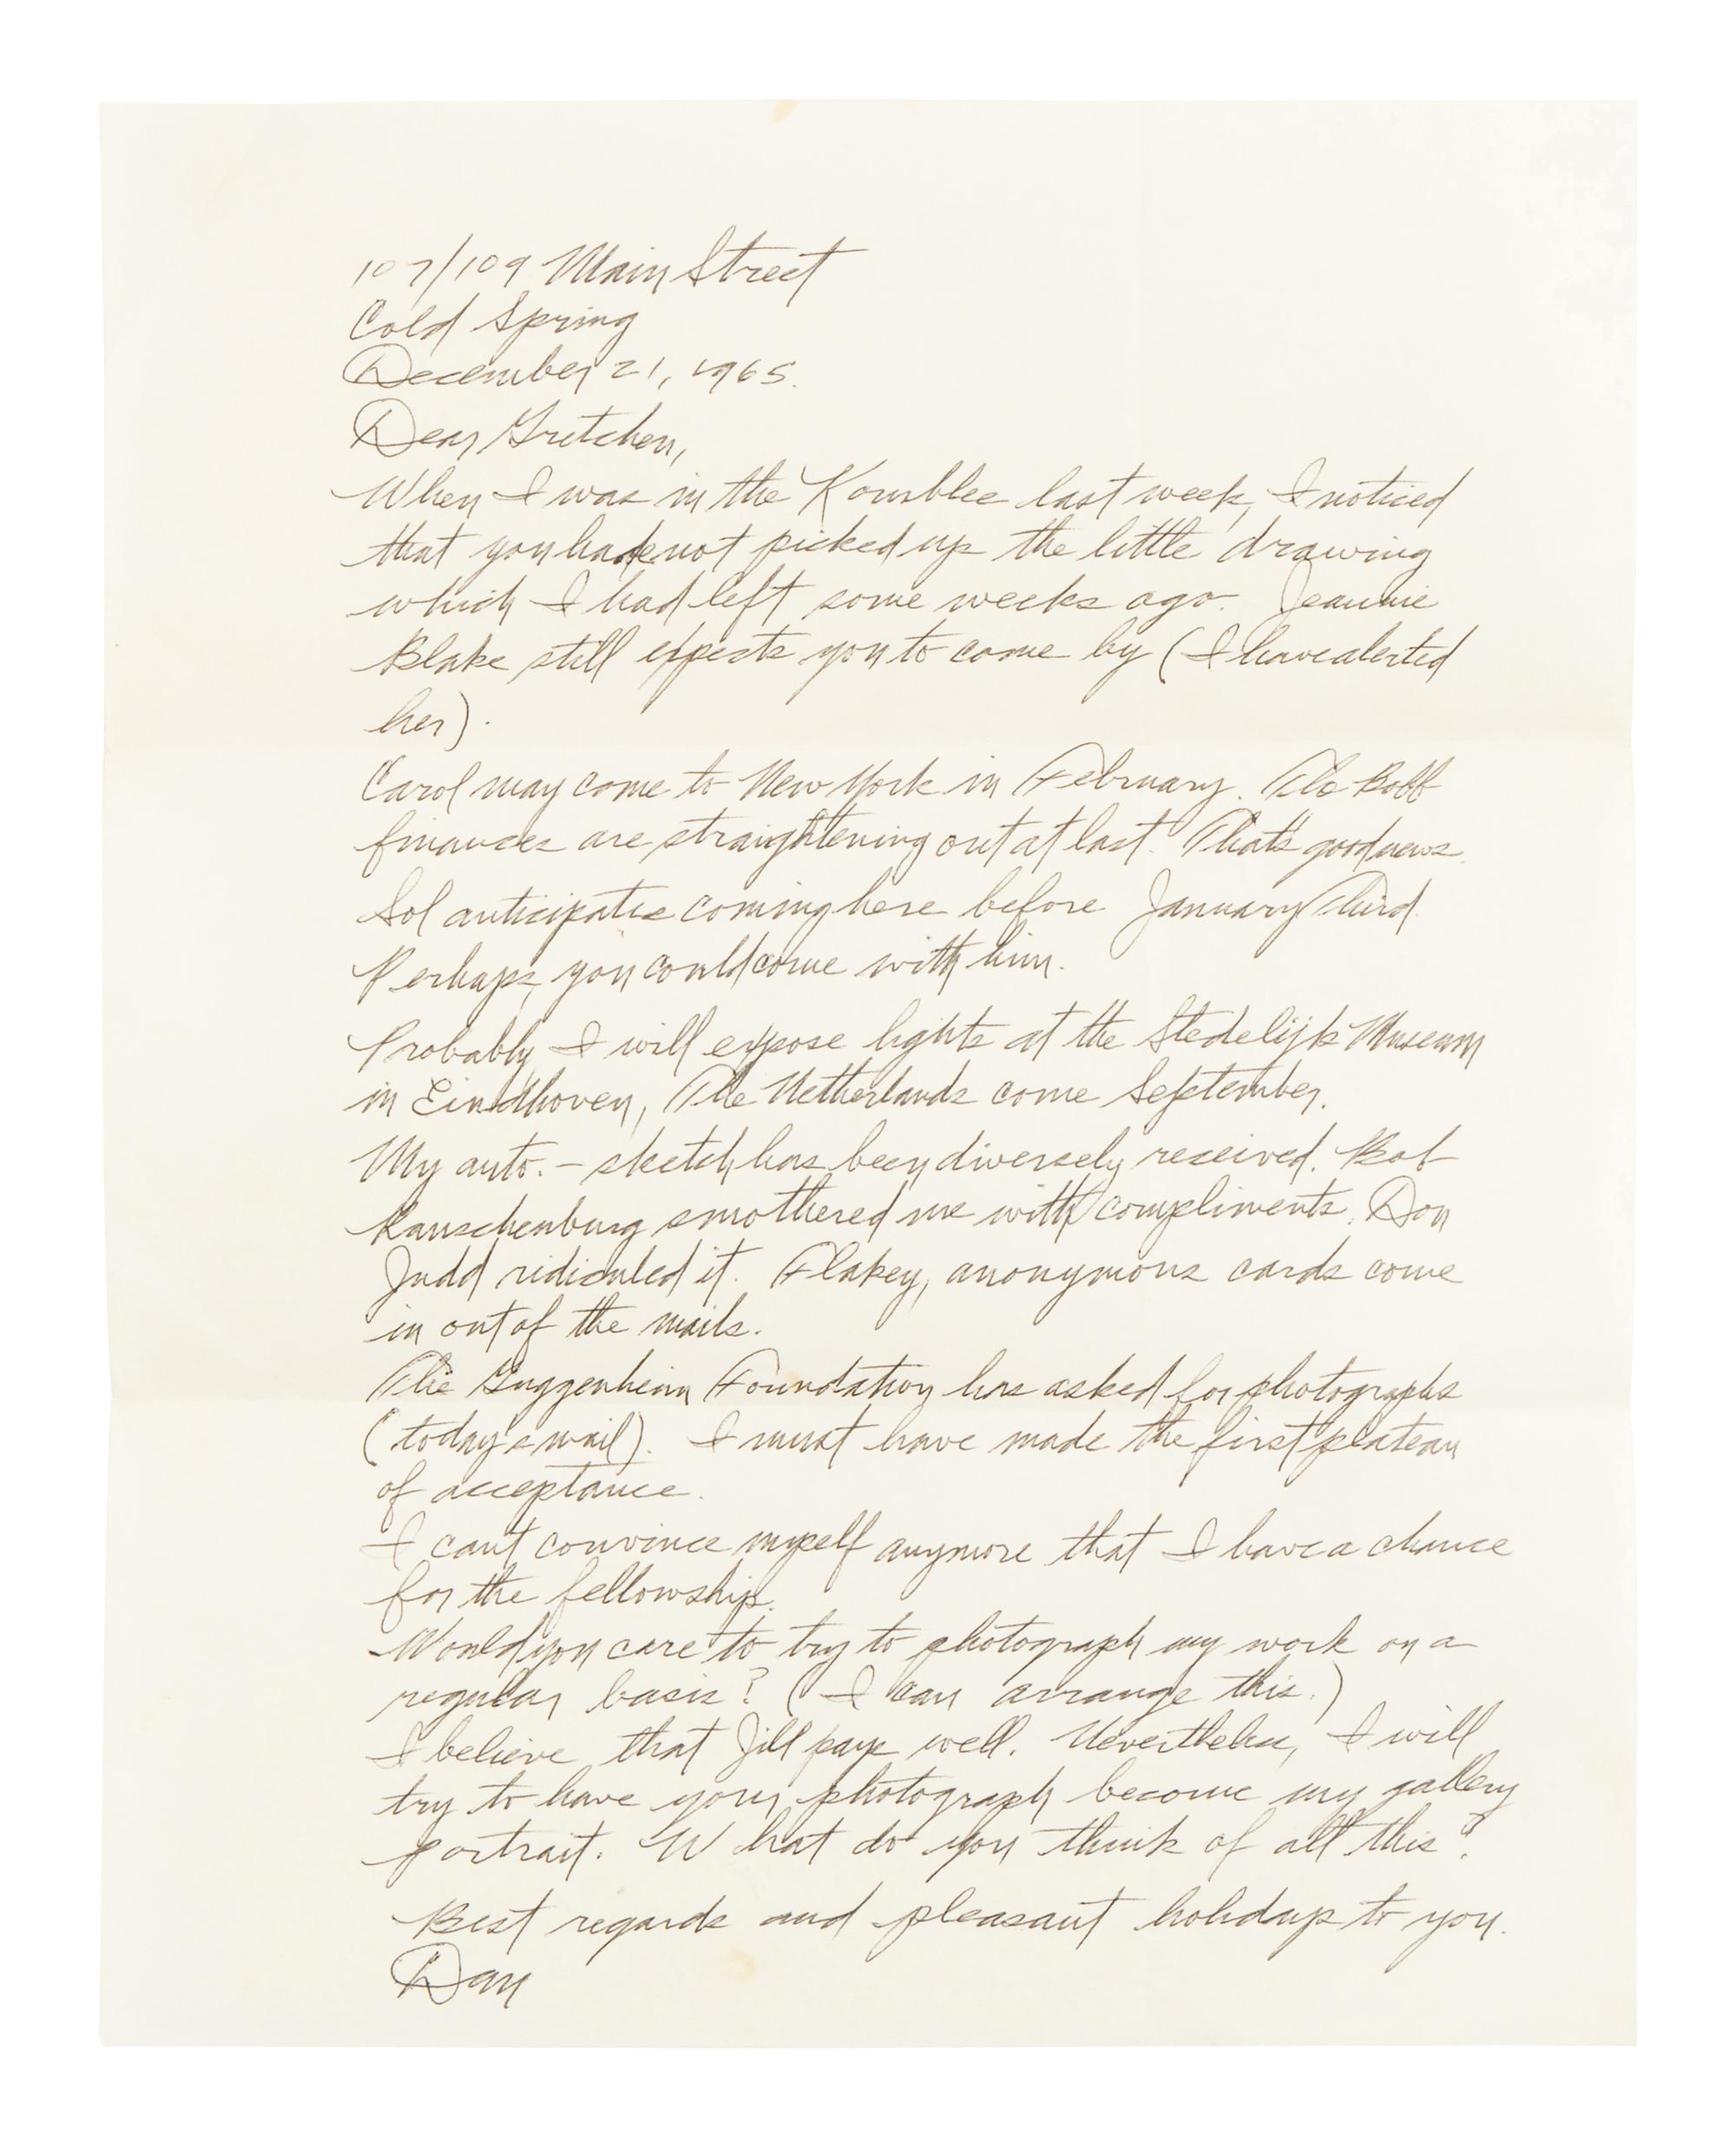 107/109 Main Street
Cold Spring
December 21, 1965.
Dear Gretchen,
When I was in the Kornblee last week, I noticed
that you had not picked up the little drawing
which I had left some weeks ago. Jeannie
Blake still expects you to come by (I have alerted
her).
Carol may come to New York in February. The Robb
finances are straightening out at last. That's good news.
Sol anticipates coming here before January Third.
Perhaps, you could come with him.
Probably I will expose lights at the Stedelijk Museum
in Eindhoven, The Netherlands come September.
My auto.- sketch has been diversely received. Bob
Rauschenburg smothered me with compliments. Don
Judd ridiculed it. Flakey, anonymous cards come
in out of the mails.
The Guggenheim Foundation has asked for photographs
(today's mail). I must have made the first plateau
of acceptance.
I can't convince myself anymore that I have a chance
for the fellowship.
Would you care to try to photograph my work on a
regular basis? (I can arrange this.)
I believe that Jill pays well. Nevertheless, I will
try to have your photograph become my gallery
portrait. What do you think of all this?
Best regards and pleasant holidays to you.
Dan